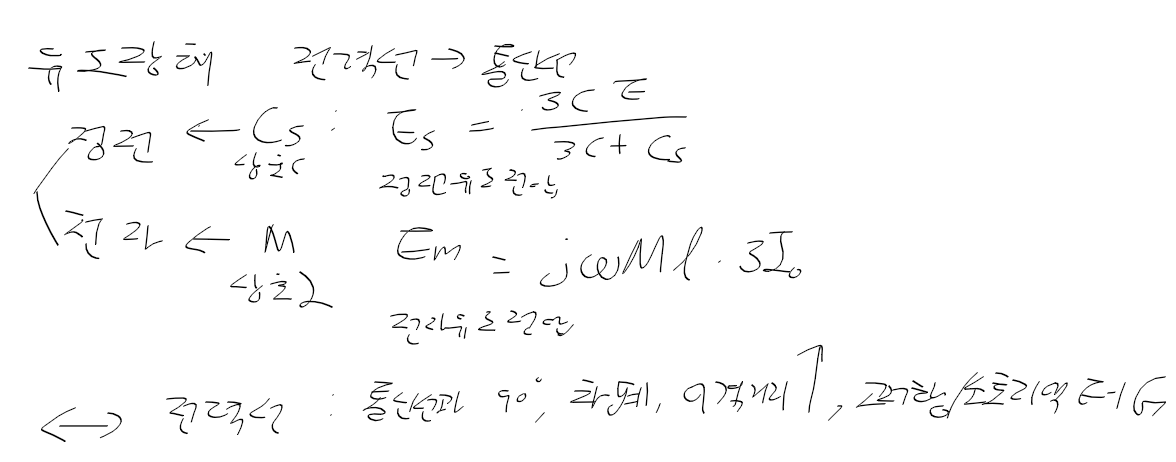 유도장해 전력선 → 통신선
정전 ← Cs : Es = 3CE / 3C+Cs
상호C 정전유도전압
전자 ← M Em = jωMl · 3I₀
상호L
전자유도전압
↔ 전력선 : 통신선과 90°, 차폐, 이격거리↑, 고저항/소호리액터 G